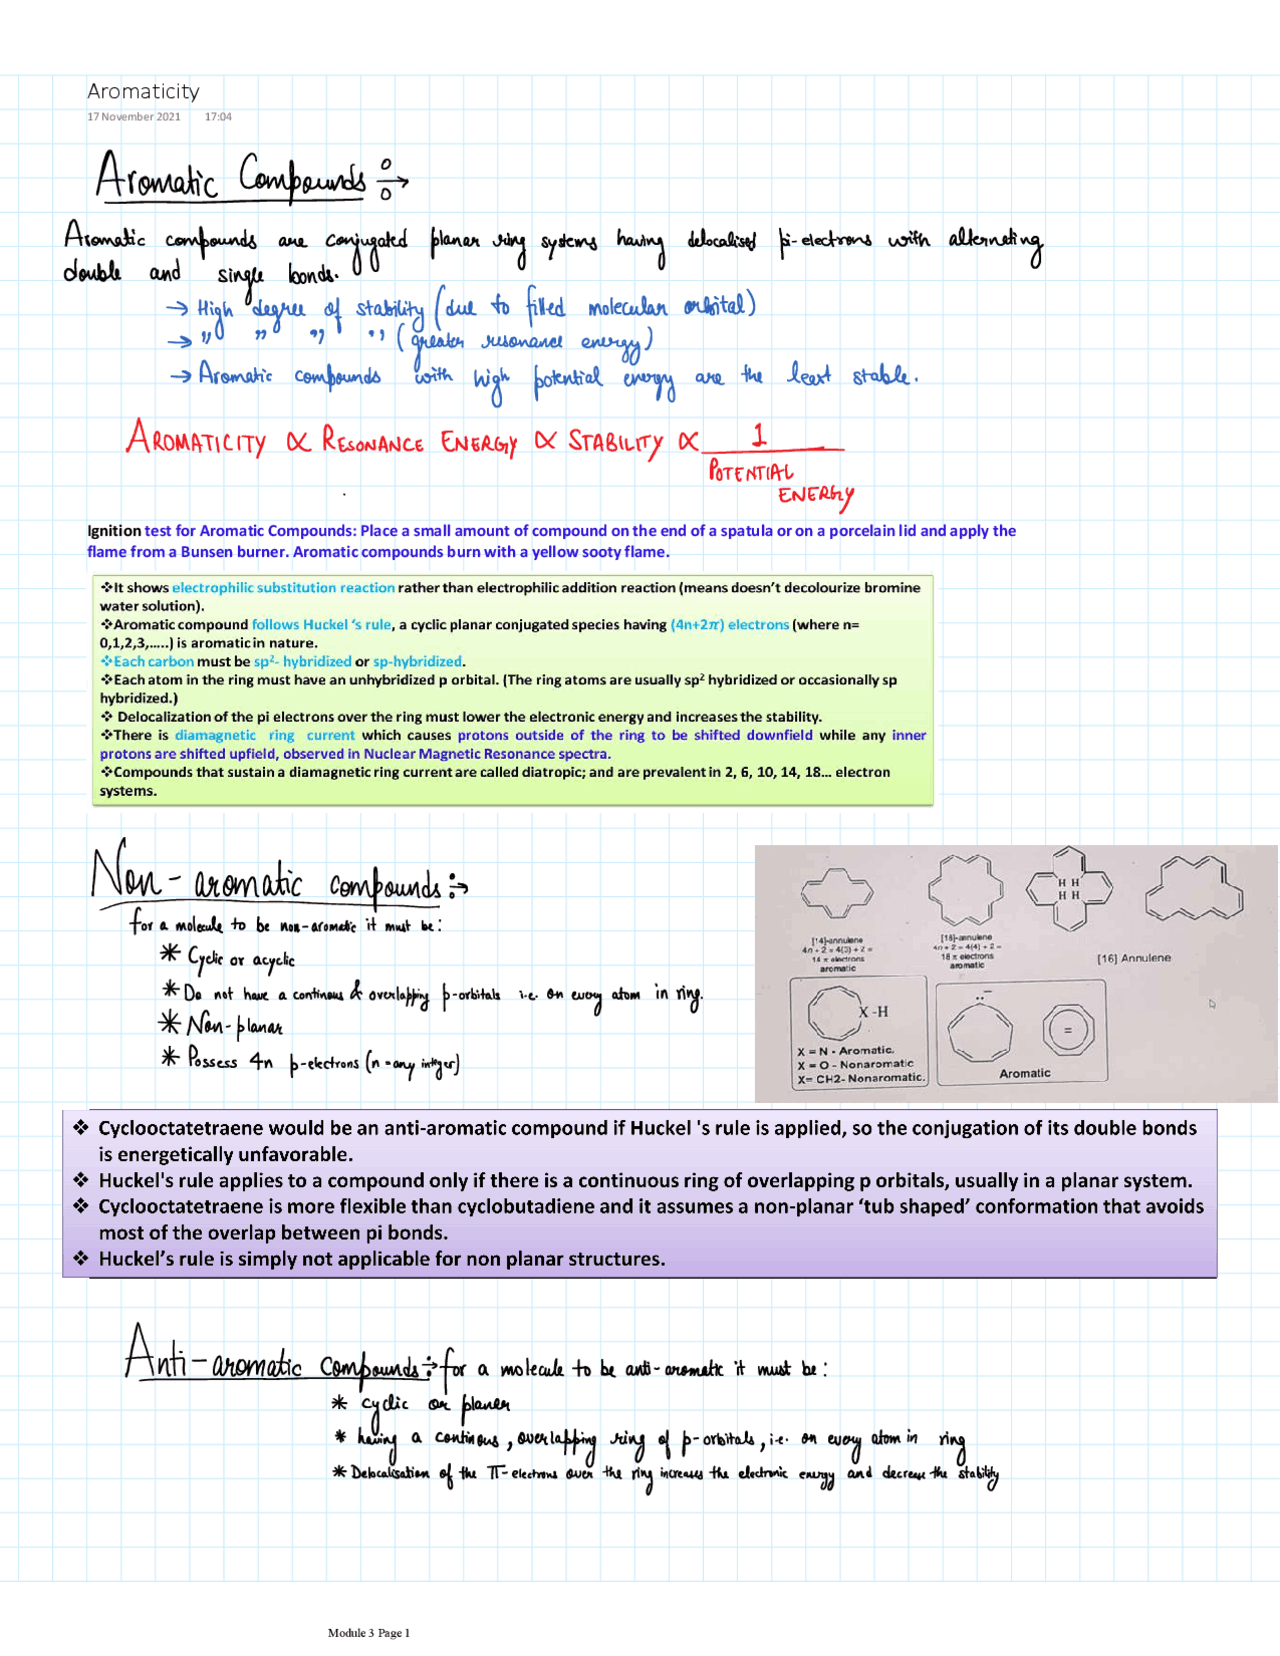 Aromaticity
17 November 2021 17:04
Aromatic Compounds
Aromatic compounds are conjugated planar ring systems having delocalised pi-electrons with alternating
double and single bonds.
→ High degree of stability (due to filled molecular orbital)
→ " " " " (greater resonance energy)
→ Aromatic compounds with high potential energy are the least stable.
AROMATICITY ∝ RESONANCE ENERGY ∝ STABILITY ∝ 1
POTENTIAL
ENERGY
Ignition test for Aromatic Compounds: Place a small amount of compound on the end of a spatula or on a porcelain lid and apply the
flame from a Bunsen burner. Aromatic compounds burn with a yellow sooty flame.
❖It shows electrophilic substitution reaction rather than electrophilic addition reaction (means doesn't decolourize bromine
water solution).
❖Aromatic compound follows Huckel 's rule, a cyclic planar conjugated species having (4n+2π) electrons (where n=
0,1,2,3,…..) is aromatic in nature.
❖Each carbon must be sp²- hybridized or sp-hybridized.
❖Each atom in the ring must have an unhybridized p orbital. (The ring atoms are usually sp² hybridized or occasionally sp
hybridized.)
❖ Delocalization of the pi electrons over the ring must lower the electronic energy and increases the stability.
❖There is diamagnetic ring current which causes protons outside of the ring to be shifted downfield while any inner
protons are shifted upfield, observed in Nuclear Magnetic Resonance spectra.
❖Compounds that sustain a diamagnetic ring current are called diatropic; and are prevalent in 2, 6, 10, 14, 18… electron
systems.
Non-aromatic compounds:→
for a molecule to be non-aromatic it must be:
* Cyclic or acyclic
* Do not have a continous & overlapping p-orbitals i.e. on every atom in ring.
* Non-planar
* Possess 4n p-electrons (n=any integer)
H H
H H
[14]-annulene
4n + 2 = 4(3) + 2 =
14 π electrons
aromatic
[18]-annulene
4n + 2 = 4(4) + 2 =
18 π electrons
aromatic
[16] Annulene
X -H
X = N - Aromatic.
X = O - Nonaromatic
X= CH2- Nonaromatic.
=
Aromatic
❖ Cyclooctatetraene would be an anti-aromatic compound if Huckel 's rule is applied, so the conjugation of its double bonds
is energetically unfavorable.
❖ Huckel's rule applies to a compound only if there is a continuous ring of overlapping p orbitals, usually in a planar system.
❖ Cyclooctatetraene is more flexible than cyclobutadiene and it assumes a non-planar 'tub shaped' conformation that avoids
most of the overlap between pi bonds.
❖ Huckel's rule is simply not applicable for non planar structures.
Anti-aromatic compounds:→ for a molecule to be anti-aromatic it must be:
* cyclic or planer
* having a continous, overlapping ring of p-orbitals, i.e. on every atom in ring
* Delocalisation of the π-electrons over the ring increases the electronic energy and decrease the stability
Module 3 Page 1